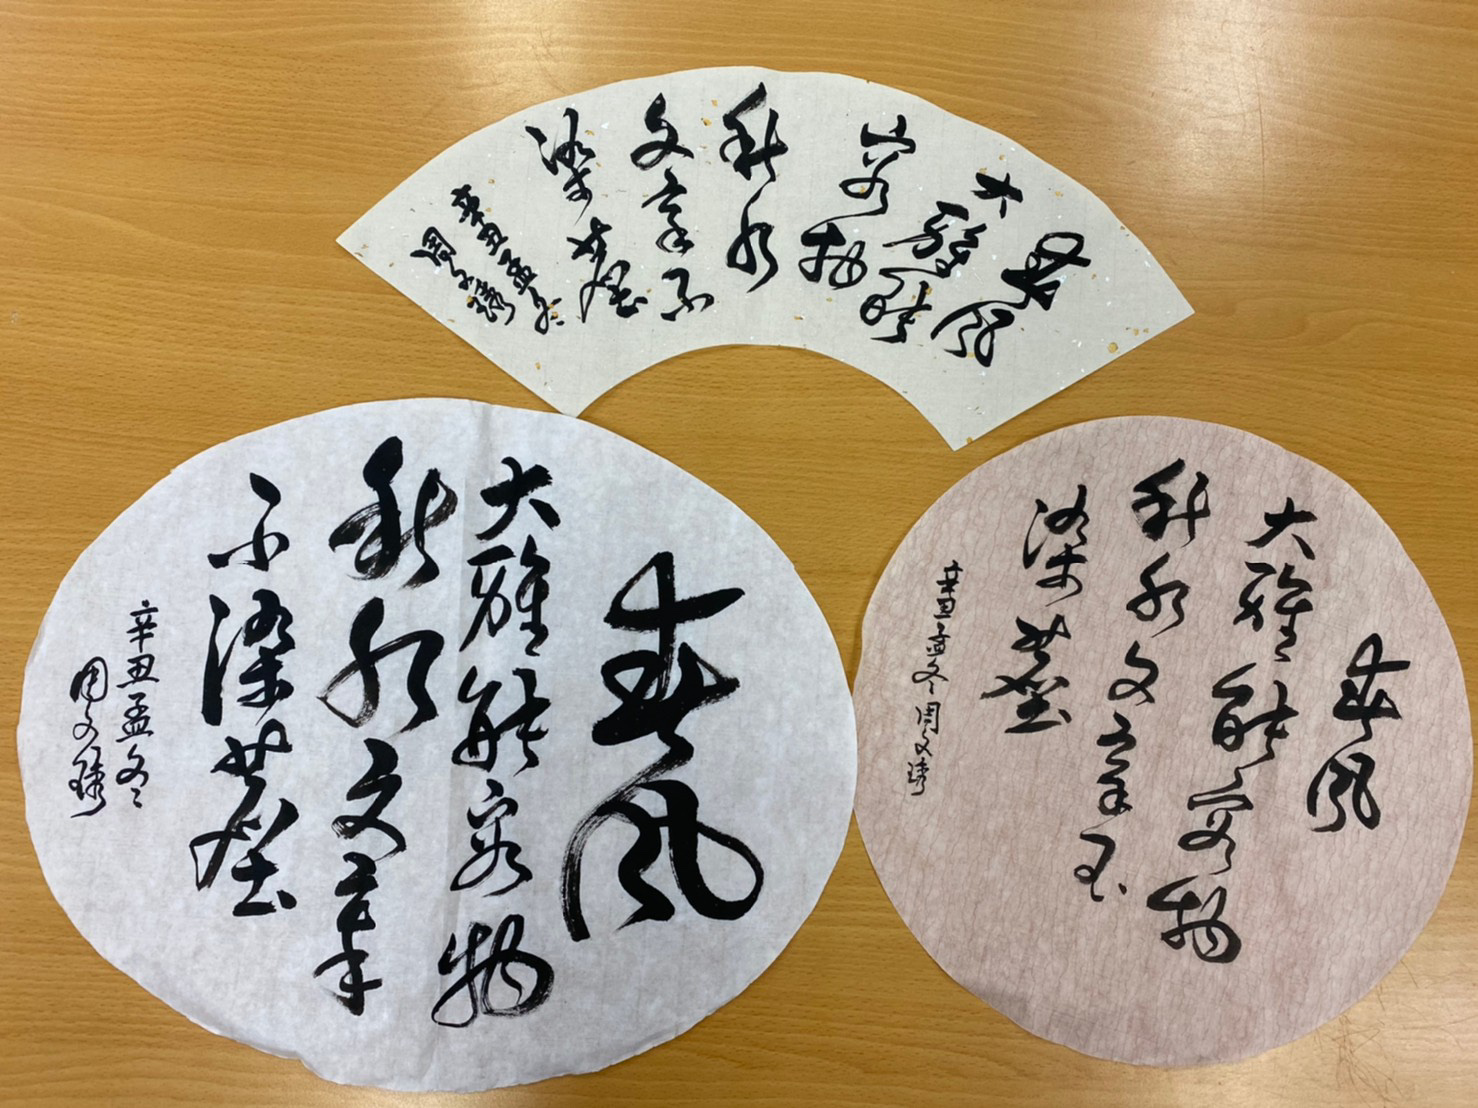 春風
大雅能
容物
秋水
文章不
染塵
辛丑孟冬
周文琇
春風
大雅能容物
秋水文章
不染塵
辛丑孟冬
周文琇
春風
大雅能容物
秋水文章不
染塵
辛丑孟冬周文琇